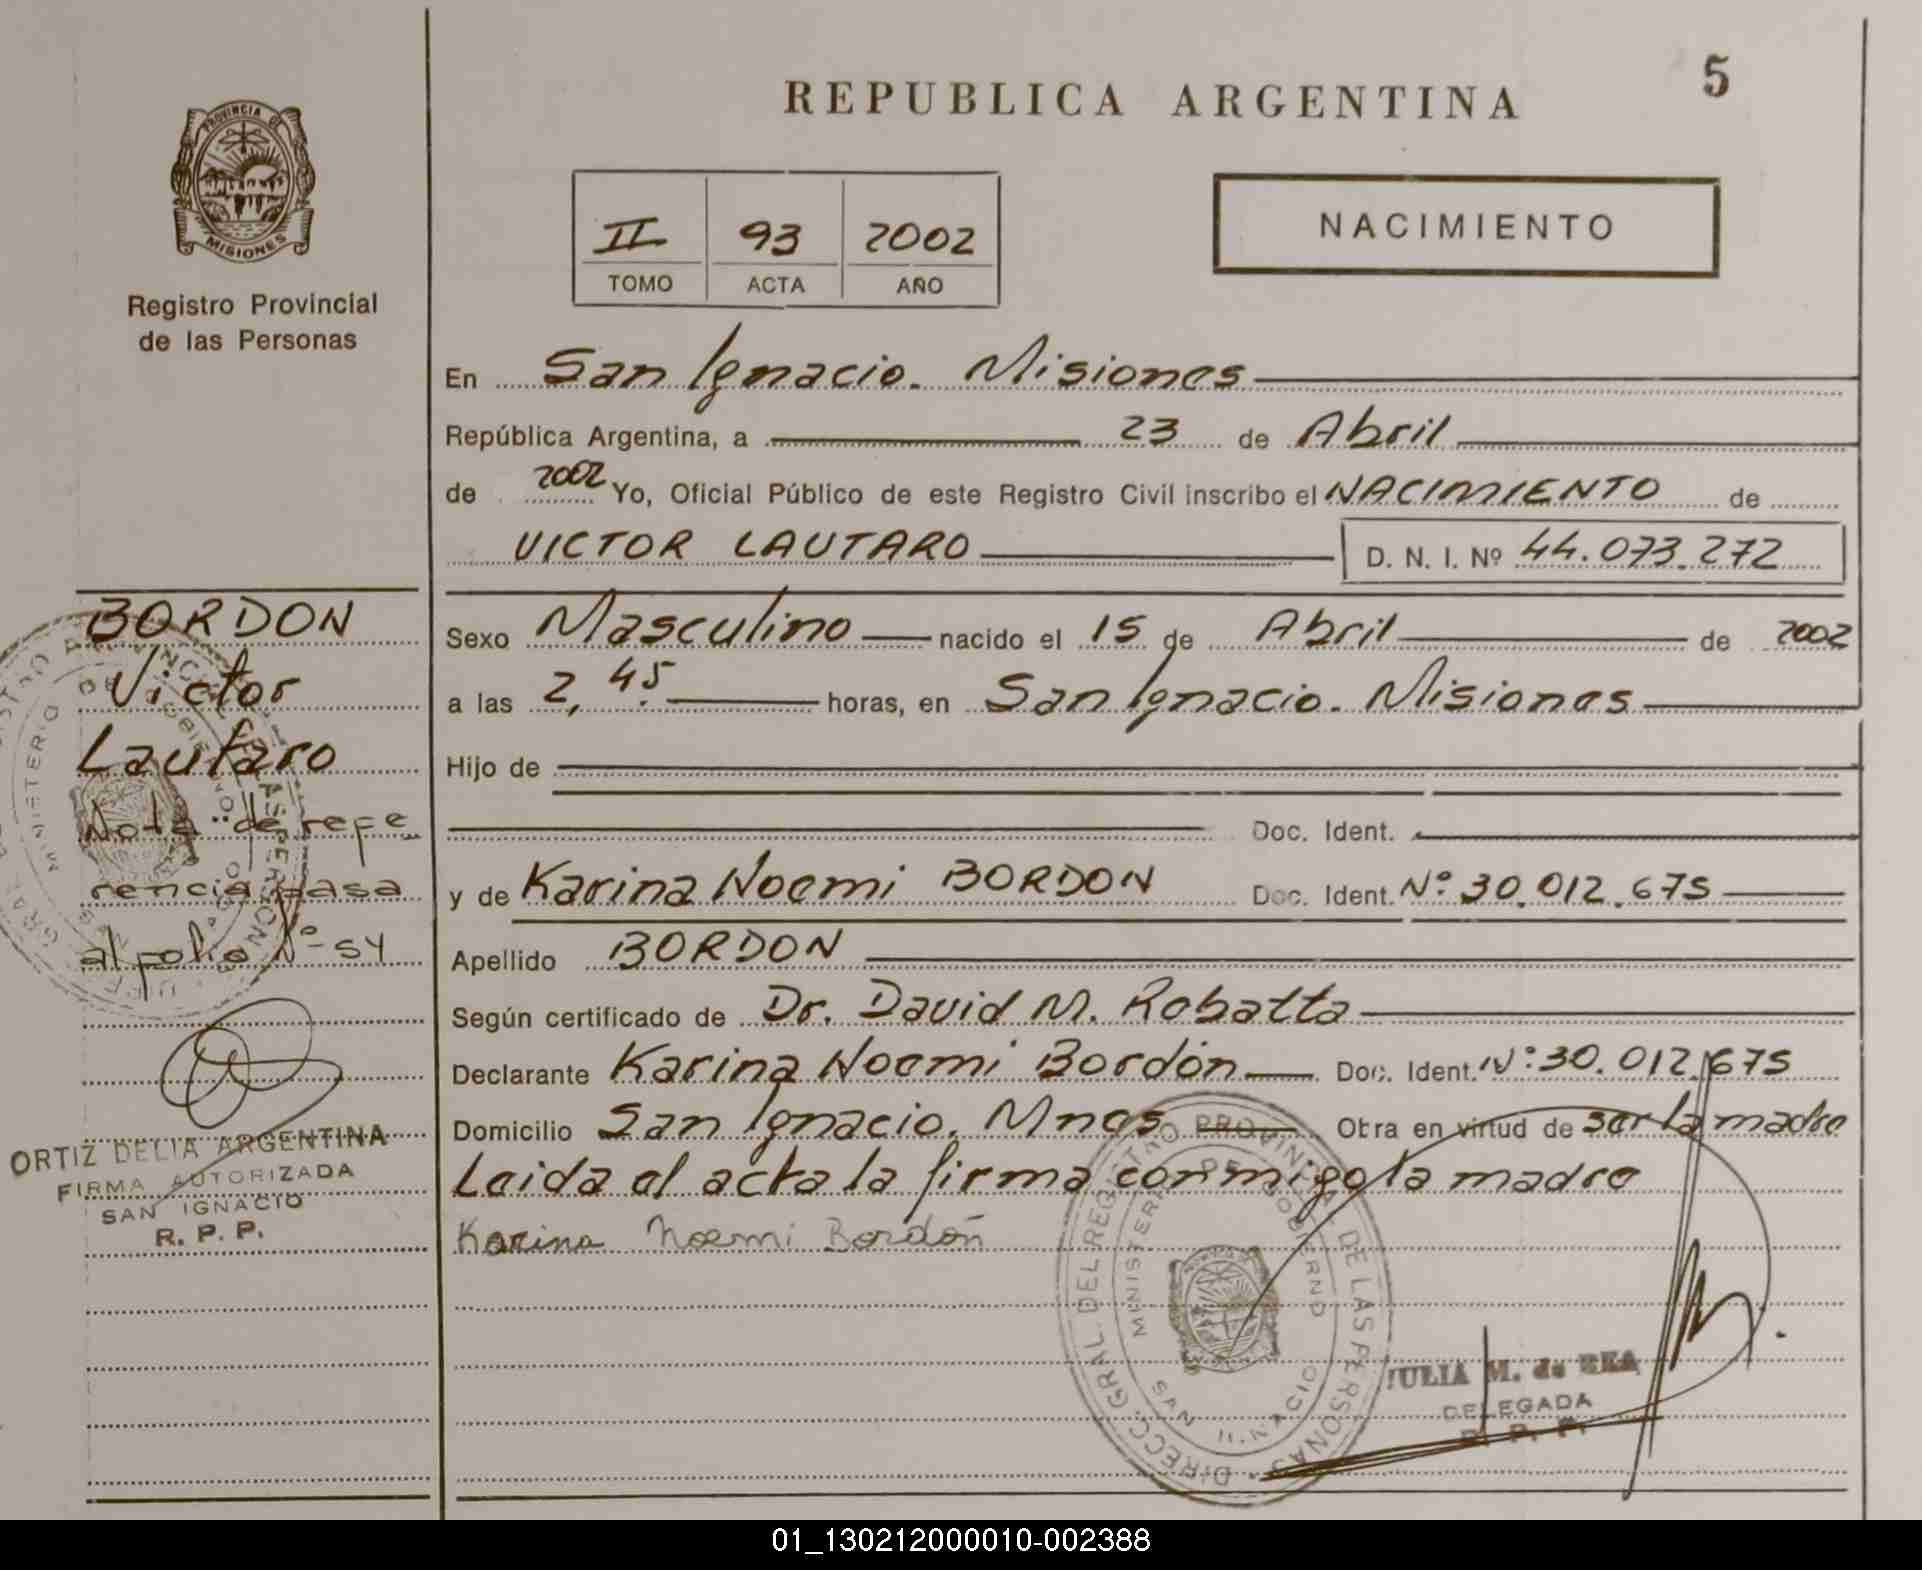 PROVINCIA DE
MISIONES
Registro Provincial
de las Personas
REPUBLICA ARGENTINA
5
II 93 2002
TOMO ACTA AÑO
NACIMIENTO
En San Ignacio. Misiones
República Argentina, a 23 de Abril
de 2002 Yo, Oficial Público de este Registro Civil inscribo el NACIMIENTO de
VICTOR LAUTARO D. N. I. Nº 44.073.272
Sexo Masculino nacido el 15 de Abril de 2002
a las 2,45 horas, en San Ignacio. Misiones
Hijo de
Doc. Ident.
y de Karina Noemi BORDON Doc. Ident. Nº 30.012.675
Apellido BORDON
Según certificado de Dr. David M. Robatta
Declarante Karina Noemi Bordón Doc. Ident. Nº: 30.012.675
Domicilio San Ignacio. Mnes Obra en virtud de ser la madre
Leida el acta la firma conmigo la madre
Karina Noemi Bordón
BORDON
Victor
Lautaro
Nota de refe
rencia pasa
al folio Nº 54
ORTIZ DELIA ARGENTINA
FIRMA AUTORIZADA
SAN IGNACIO
R. P. P.
DIRECC. GRAL. DEL REGISTRO PROVINCIAL DE LAS PERSONAS
MINISTERIO DE GOBIERNO
SAN IGNACIO
JULIA M. de REA
DELEGADA
R. P. P.
01_130212000010-002388